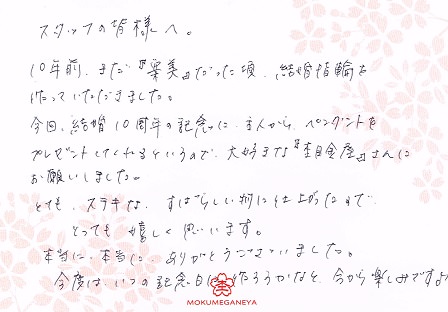 スタッフの皆様へ。
10年前、まだ『栗美』だった頃、結婚指輪を
作っていただきました。
今回、結婚10周年の記念に、主人から、ペンダントを
プレゼントしてくれるというので、大好きな『杢目金屋』さんに
お願いしました。
とても、ステキな、すばらしい物に仕上がったので、
とっても嬉しく思います。
本当に、本当に、ありがとうございました。
今度は、いつの記念日に作ろうかなと、今から楽しみですよ
MOKUMEGANEYA